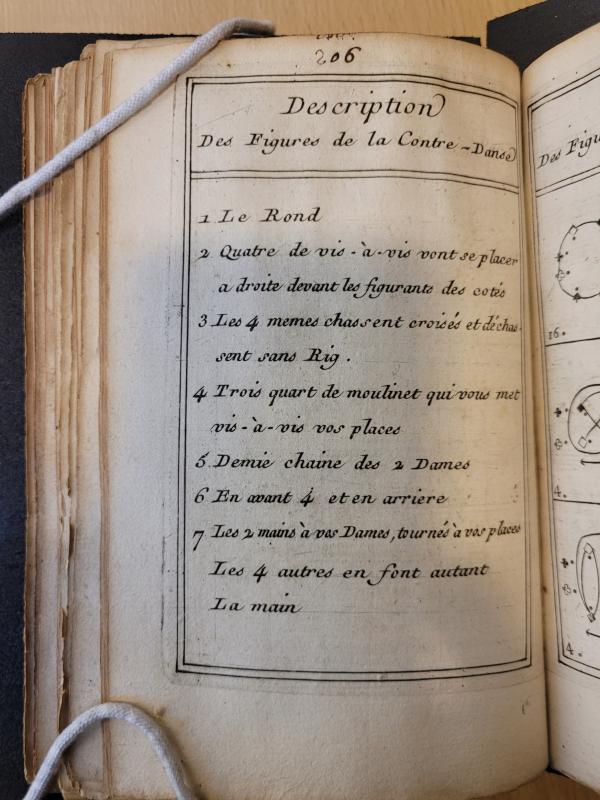 206
Description
Des Figures de la Contre-Danse
1 Le Rond
2 Quatre de vis-à-vis vont se placer
a droite devant les figurants des cotés
3 Les 4 memes chassent croisés et déchas-
sent sans Rig.
4 Trois quart de moulinet qui vous met
vis-à-vis vos places
5 Demie chaine des 2 Dames
6 En avant 4 et en arriere
7 Les 2 mains à vos Dames, tournés à vos places
Les 4 autres en font autant
La main
Des Figu
16.
4.
4.